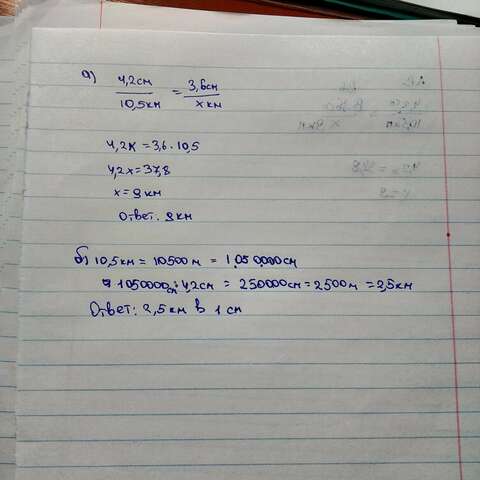 а) 4,2см/10,5км = 3,6см/х км
4,2х = 3,6 · 10,5
4,2х = 37,8
х = 9 км
Ответ: 9 км
б) 10,5км = 10500 м = 1050000см
1050000см : 4,2см = 250000см = 2500м = 2,5км
Ответ: 2,5 км в 1 см